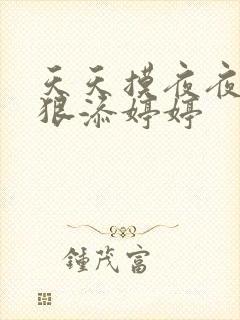 天天摸夜夜
狠添婷婷
鍾茂富